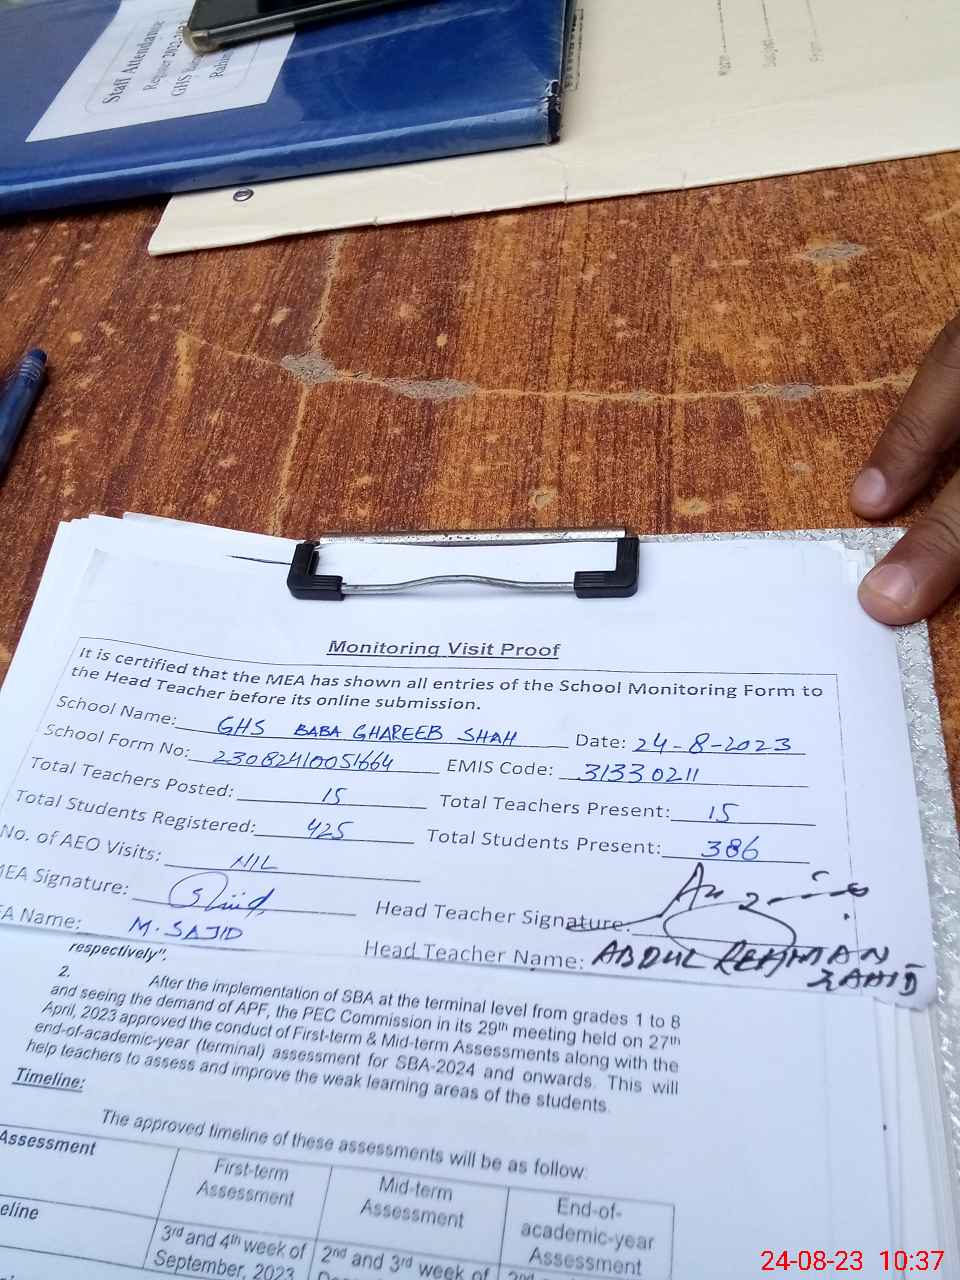 Staff Attendance
Register 2022-
GHS Ba
Rahim
Monitoring Visit Proof
It is certified that the MEA has shown all entries of the School Monitoring Form to
the Head Teacher before its online submission.
School Name: GHS BABA GHAREEB SHAH Date: 24-8-2023
School Form No: 23082410051664 EMIS Code: 31330211
Total Teachers Posted: 15 Total Teachers Present: 15
Total Students Registered: 425 Total Students Present: 386
No. of AEO Visits: NIL
MEA Signature: Head Teacher Signature:
EA Name: M. SAJID Head Teacher Name: ABDUL REHMAN
ZAHID
respectively".
2. After the implementation of SBA at the terminal level from grades 1 to 8
and seeing the demand of APF, the PEC Commission in its 29th meeting held on 27th
April, 2023 approved the conduct of First-term & Mid-term Assessments along with the
end-of-academic-year (terminal) assessment for SBA-2024 and onwards. This will
help teachers to assess and improve the weak learning areas of the students.
Timeline:
The approved timeline of these assessments will be as follow:
Assessment First-term Assessment Mid-term Assessment End-of-academic-year Assessment
eline 3rd and 4th week of September, 2023 2nd and 3rd week of
24-08-23 10:37